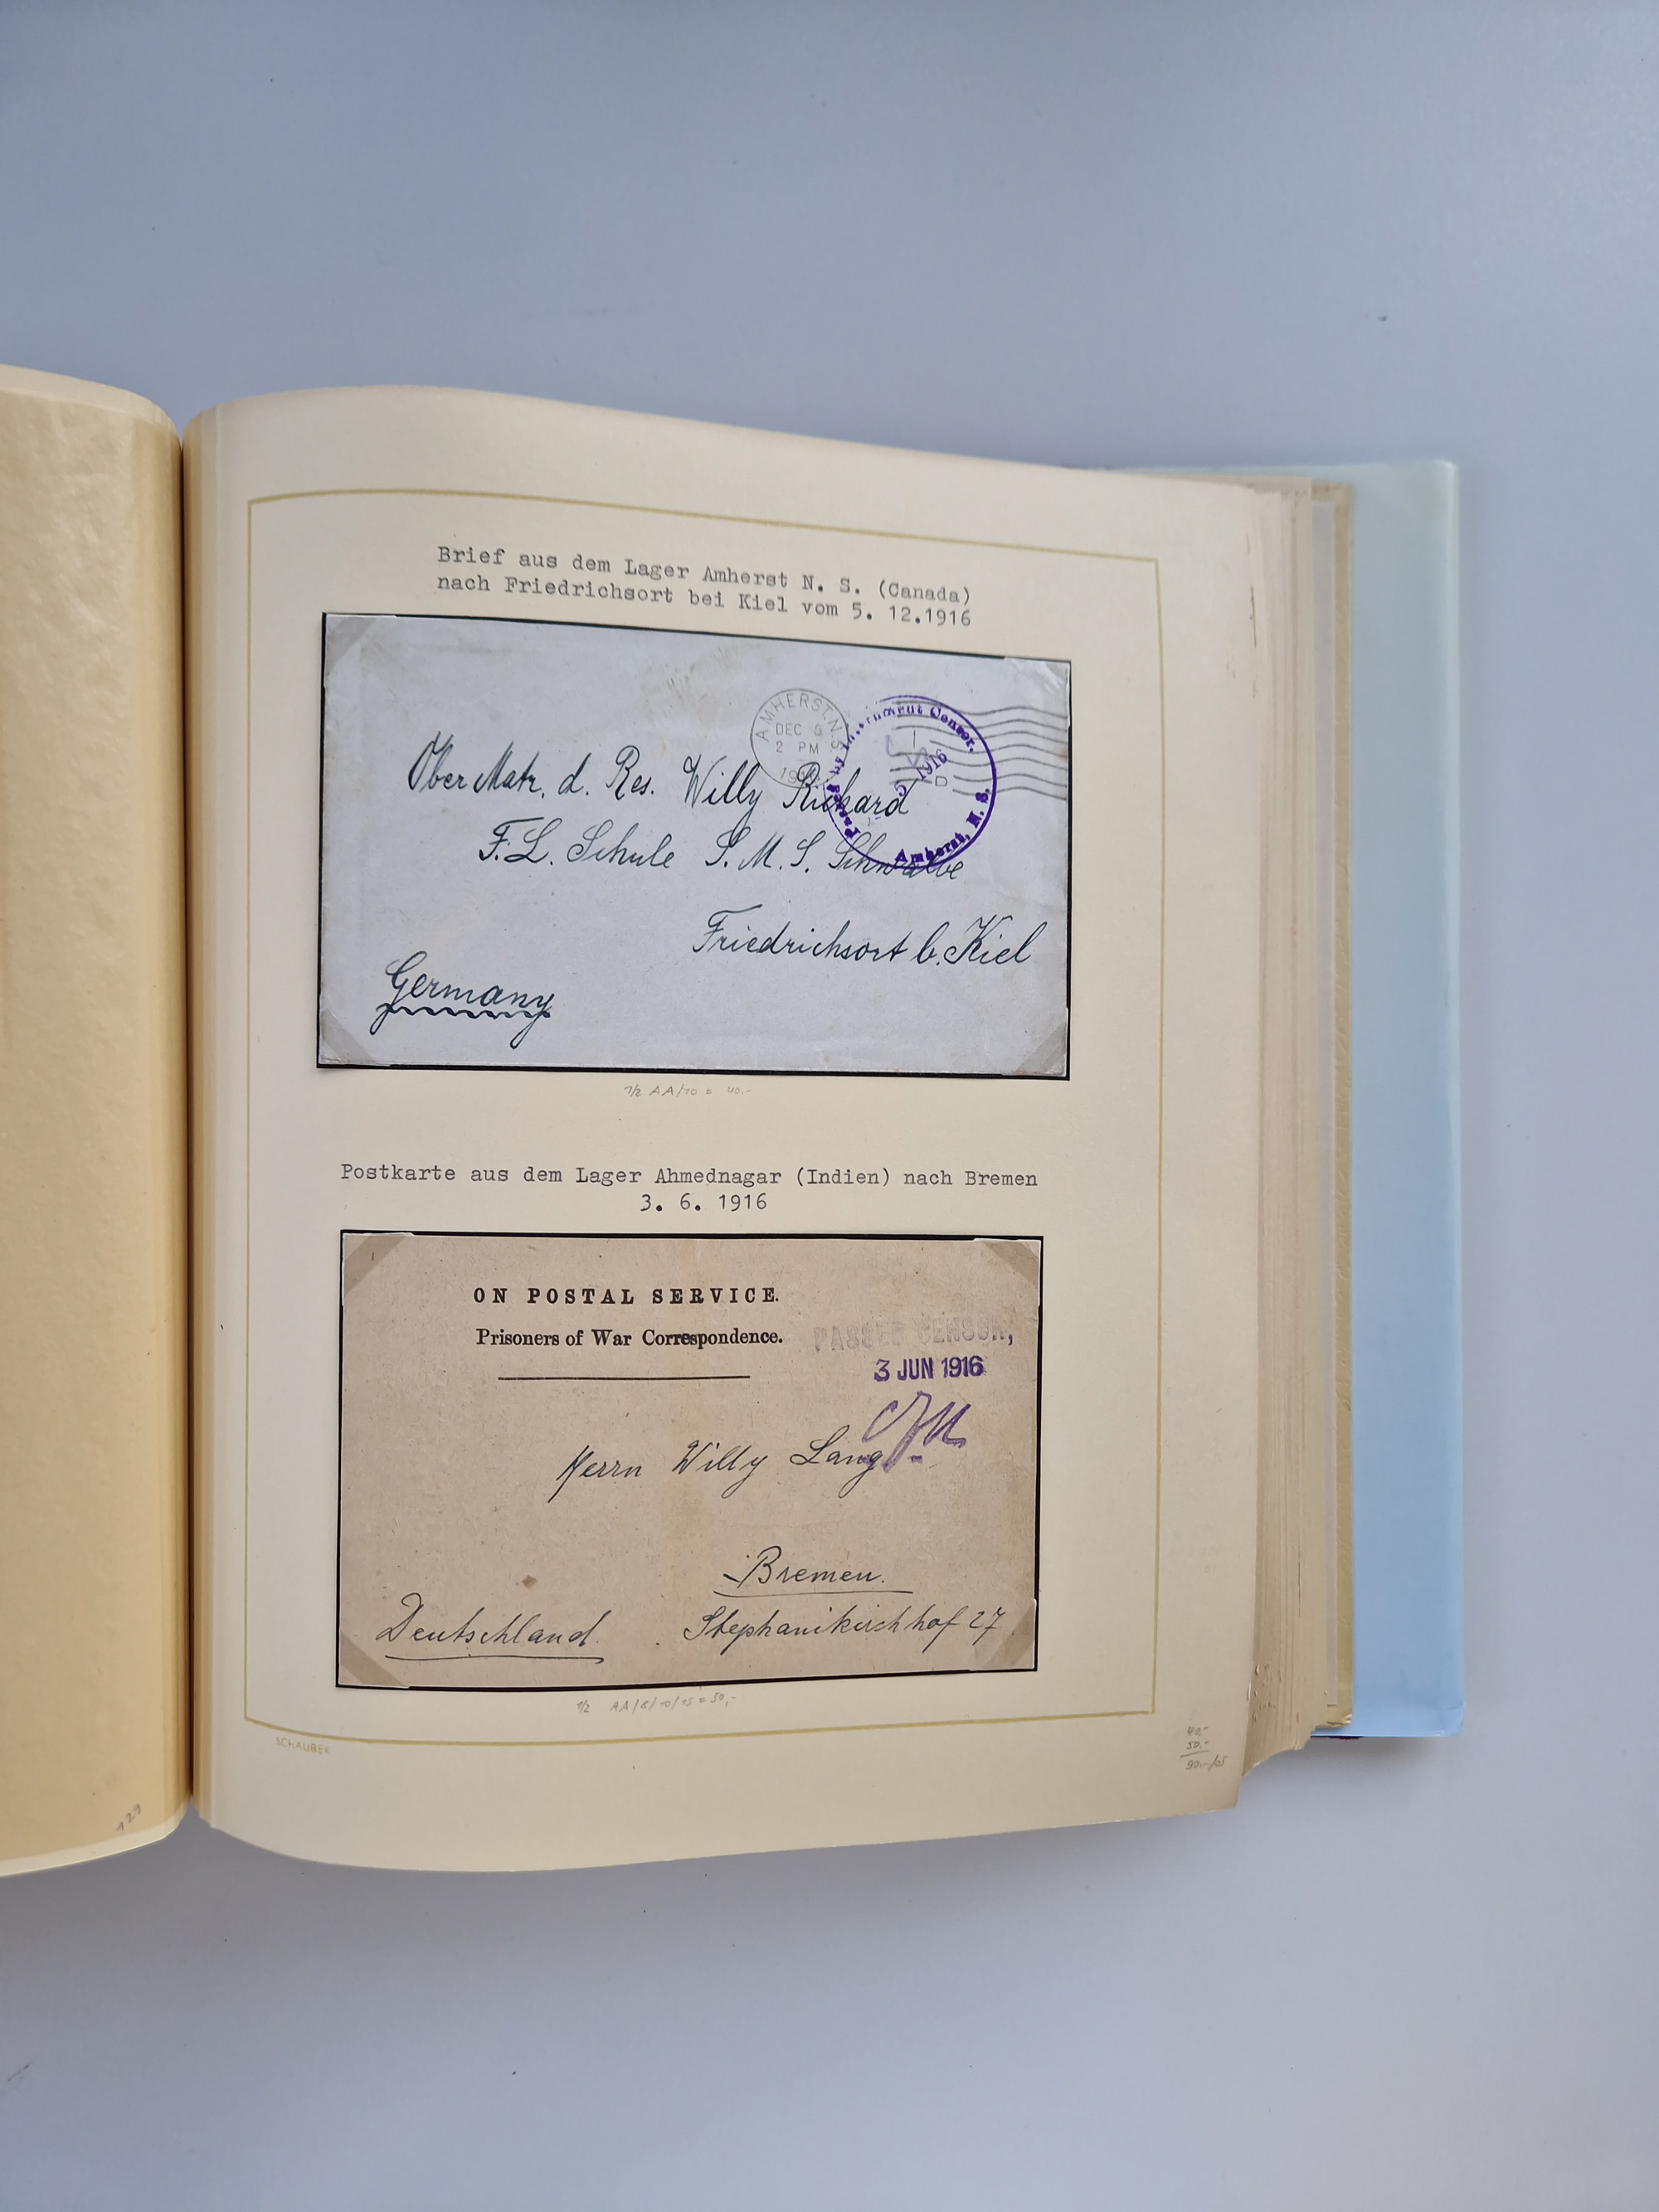 Brief aus dem Lager Amherst N. S. (Canada)
nach Friedrichsort bei Kiel vom 5. 12.1916
AMHERST. N.S.
DEC 5
2 PM
Passed by Internment Censor.
1916
Amherst, N. S.
Ober Matr. d. Res. Willy Richard
F. L. Schule S. M. S. Schwalbe
Friedrichsort b. Kiel
Germany
1/2 AA/10 = 40.-
Postkarte aus dem Lager Ahmednagar (Indien) nach Bremen
3. 6. 1916
ON POSTAL SERVICE.
Prisoners of War Correspondence.
PASSED CENSOR,
3 JUN 1916
Herrn Willy Lang
Bremen.
Deutschland. Stephanikirchhof 27.
1/2 AA/8/10/15 = 50,-
SCHAUBEK
40,-
50.-
129